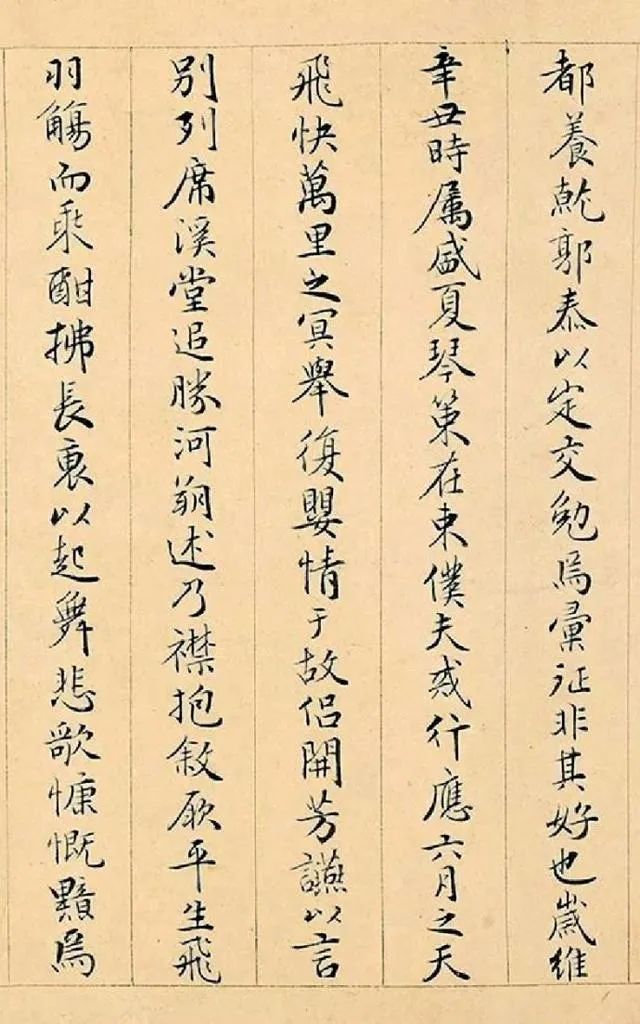 都養乾郭泰以定交勉焉彙征非其好也歲維
辛丑時属盛夏琴策在東僕夫戒行應六月之天
飛快萬里之冥舉復嬰情于故侣開芳讌以言
別列席溪堂追勝河朔述乃襟抱敘厥平生飛
羽觴而乘酣拂長裒以起舞悲歌慷慨黯焉